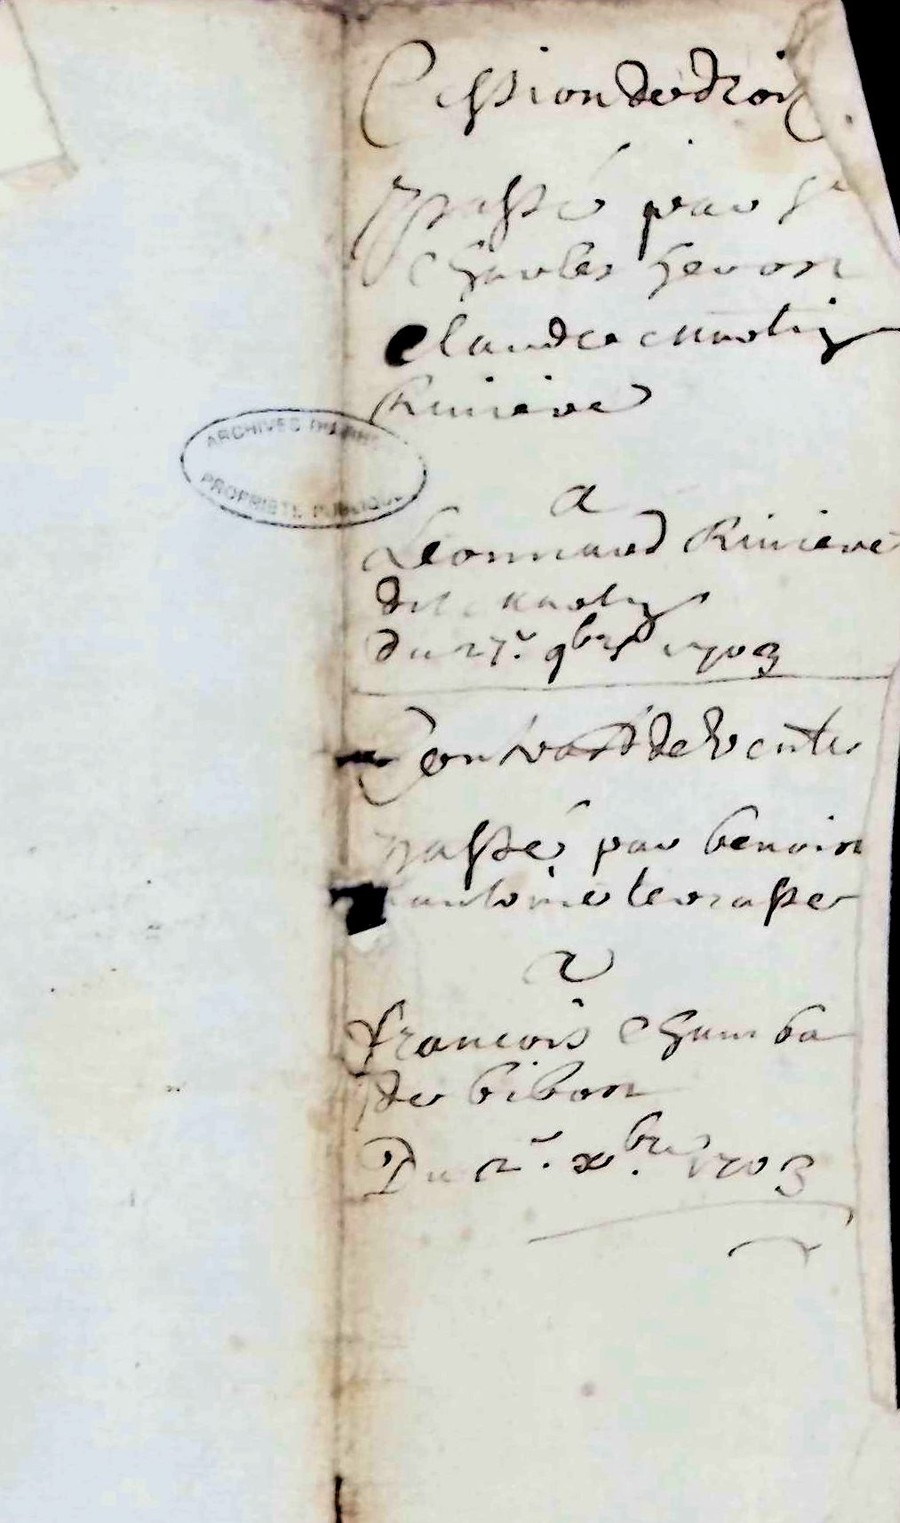 Cession de droit
passé par Sr
Charles heron
Claude martin
Riviere
ARCHIVES
PROPRIETE PUBLIQUE
a
Leonnard Riviere
dit martin
du 27e 9bre 1703
Contract de Vente
passé par benoin
antoine
a
francois Chamba
de bibon
Du 2e xbre 1703